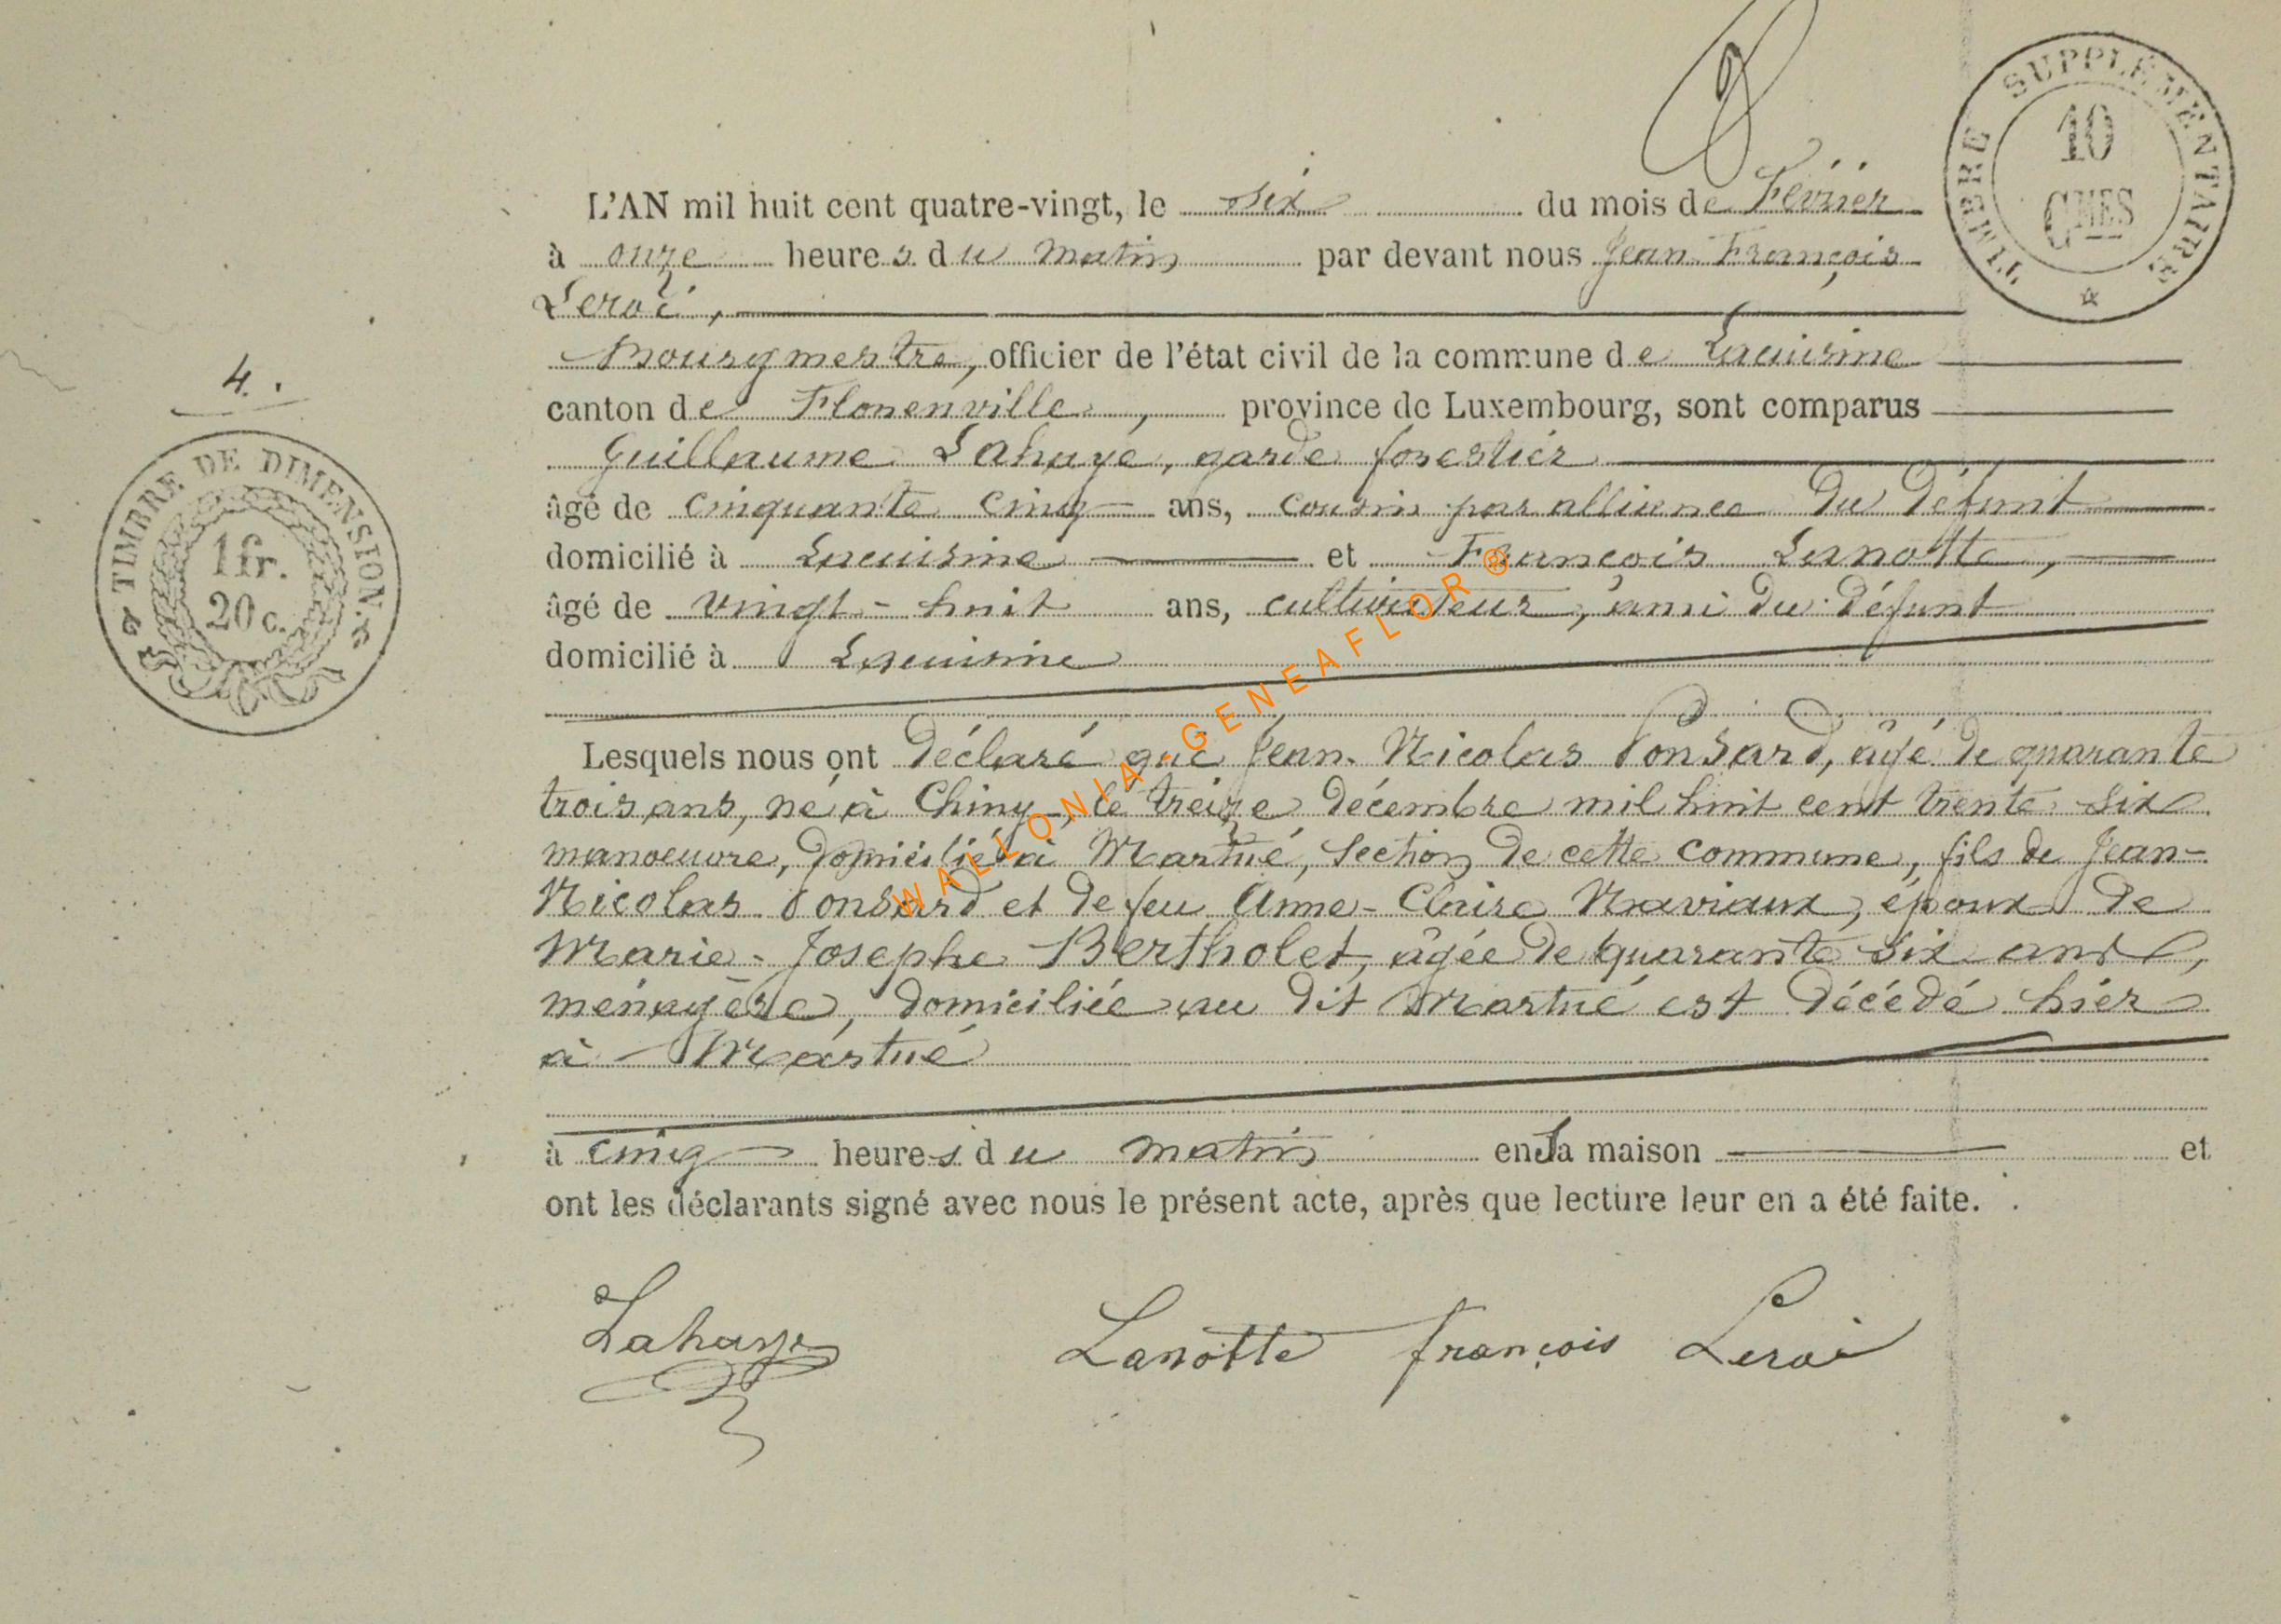 TIMBRE SUPPLÉMENTAIRE
10
CMES
L'AN mil huit cent quatre-vingt, le six du mois de Février
à onze heures du matin par devant nous Jean François
Leroi,
Bourgmestre, officier de l'état civil de la commune de Lacuisine
canton de Florenville, province de Luxembourg, sont comparus
Guillaume Lahaye, garde forestier
âgé de cinquante cinq ans, cousin par alliance du défunt
domicilié à Lacuisine et François Lanotte,
âgé de vingt-huit ans, cultivateur, ami du défunt
domicilié à Lacuisine
4.
TIMBRE DE DIMENSION.
1 fr.
20 c.
Lesquels nous ont déclaré que Jean-Nicolas Ponsard, âgé de quarante
trois ans, né à Chiny, le treize décembre mil huit cent trente six
manoeuvre, domicilié à Martué, section de cette commune, fils de Jean-
Nicolas Ponsard et de feu Anne-Claire Naviaux, époux de
Marie-Josephe Bertholet, âgée de quarante six ans,
ménagère, domiciliée au dit Martué est décédé hier
à Martué
à cinq heures du matin en sa maison et
ont les déclarants signé avec nous le présent acte, après que lecture leur en a été faite.
Lahaye Lanotte françois Leroi
WALLONIA-GENEAFLOR®